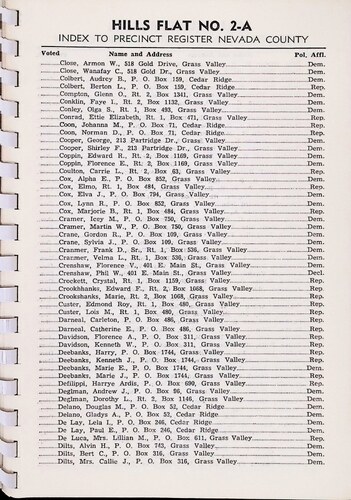 HILLS FLAT NO. 2-A
INDEX TO PRECINCT REGISTER NEVADA COUNTY
Voted Name and Address Pol. Affl.
Close, Armon W., 518 Gold Drive, Grass Valley Dem.
Close, Wanafay C., 518 Gold Dr., Grass Valley Dem.
Colbert, Audrey B., P. O. Box 159, Cedar Ridge Dem.
Colbert, Berton L., P. O. Box 159, Cedar Ridge Rep.
Compton, Glenn O., Rt. 2, Box 1341, Grass Valley Dem.
Conklin, Faye I., Rt. 2, Box 1132, Grass Valley Dem.
Conley, Olga S., Rt. 1, Box 493, Grass Valley Dem.
Conrad, Ettie Elizabeth, Rt. 1, Box 471, Grass Valley Rep.
Coon, Johanna M., P. O. Box 71, Cedar Ridge Rep.
Coon, Norman D., P. O. Box 71, Cedar Ridge Rep.
Cooper, George, 213 Partridge Dr., Grass Valley Dem.
Cooper, Shirley F., 213 Partridge Dr., Grass Valley Dem.
Coppin, Edward R., Rt. 2, Box 1169, Grass Valley Dem.
Coppin, Florence E., Rt. 2, Box 1169, Grass Valley Dem.
Coulton, Carrie L., Rt. 2, Box 63, Grass Valley Rep.
Cox, Alpha E., P. O. Box 852, Grass Valley Dem.
Cox, Elmo, Rt. 1, Box 484, Grass Valley Rep.
Cox, Elva J., P. O. Box 794, Grass Valley Dem.
Cox, Lynn R., P. O. Box 852, Grass Valley Dem.
Cox, Marjorie B., Rt. 1, Box 484, Grass Valley Rep.
Cramer, Iccy M., P. O. Box 750, Grass Valley Dem.
Cramer, Martin W., P. O. Box 750, Grass Valley Dem.
Crane, Gordon R., P. O. Box 109, Grass Valley Dem.
Crane, Sylvia J., P. O. Box 109, Grass Valley Dem.
Craumer, Frank D., Sr., Rt. 1, Box 536, Grass Valley Dem.
Craumer, Velma L., Rt. 1, Box 536, Grass Valley Dem.
Crenshaw, Florence V., 401 E. Main St., Grass Valley Dem.
Crenshaw, Phil W., 401 E. Main St., Grass Valley Decl.
Crockett, Crystal, Rt. 1, Box 1159, Grass Valley Rep.
Crookshanks, Edward F., Rt. 2, Box 1068, Grass Valley Rep.
Crookshanks, Marie, Rt. 2, Box 1068, Grass Valley Rep.
Custer, Edmond Roy, Rt. 1, Box 480, Grass Valley Rep.
Custer, Lois M., Rt. 1, Box 480, Grass Valley Rep.
Darneal, Carleton, P. O. Box 486, Grass Valley Rep.
Darneal, Catherine E., P. O. Box 486, Grass Valley Rep.
Davidson, Florence A., P. O. Box 311, Grass Valley Rep.
Davidson, Kenneth W., P. O. Box 311, Grass Valley Rep.
Deebanks, Harry, P. O. Box 1744, Grass Valley Rep.
Deebanks, Kenneth J., P. O. Box 1744, Grass Valley Rep.
Deebanks, Marie E., P. O. Box 1744, Grass Valley Dem.
Deebanks, Marie J., P. O. Box 1744, Grass Valley Rep.
Defilippi, Harrye Ardis, P. O. Box 690, Grass Valley Rep.
Deglman, Andrew J., P. O. Box 96, Grass Valley Dem.
Deglman, Dorothy L., Rt. 2, Box 1146, Grass Valley Dem.
Delano, Douglas M., P. O. Box 52, Cedar Ridge Dem.
Delano, Gladys A., P. O. Box 52, Cedar Ridge Dem.
De Lay, Lela I., P. O. Box 246, Cedar Ridge Dem.
De Lay, Paul E., P. O. Box 246, Cedar Ridge Dem.
De Luca, Mrs. Lillian M., P. O. Box 611, Grass Valley Rep.
Dilts, Alvin H., P. O. Box 743, Grass Valley Dem.
Dilts, Bert C., P. O. Box 316, Grass Valley Dem.
Dilts, Mrs. Callie J., P. O. Box 316, Grass Valley Dem.